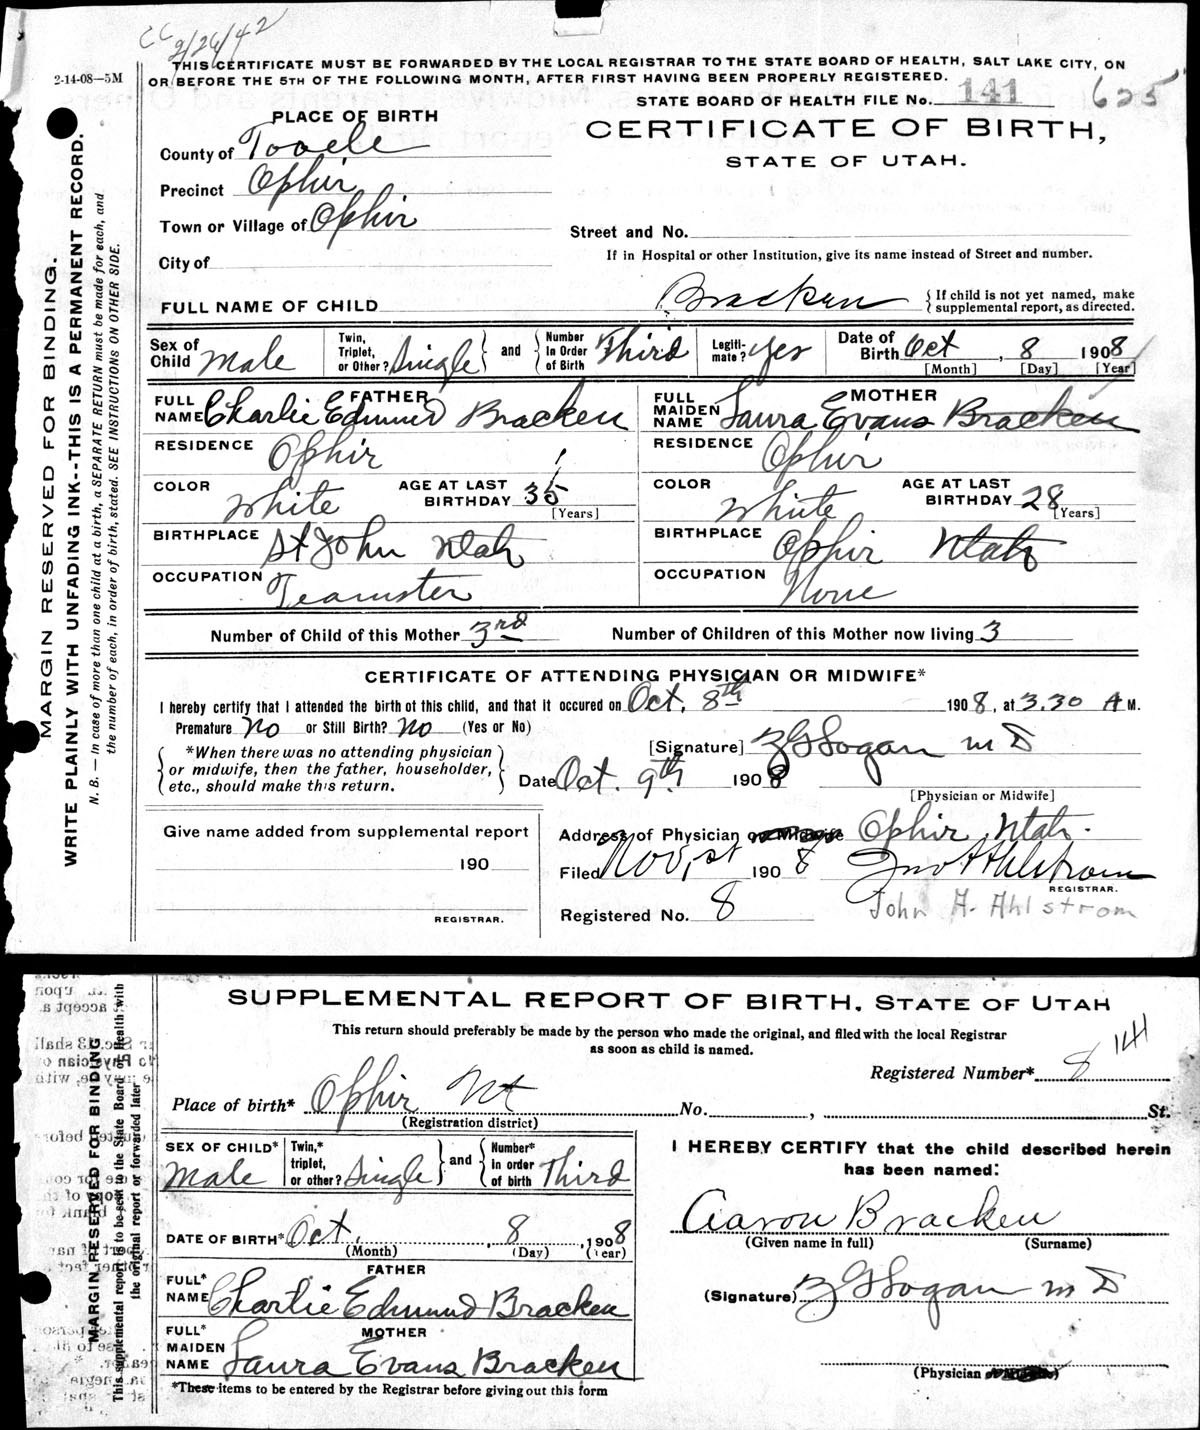 CC 2/26/42
2-14-08—5M
THIS CERTIFICATE MUST BE FORWARDED BY THE LOCAL REGISTRAR TO THE STATE BOARD OF HEALTH, SALT LAKE CITY, ON
OR BEFORE THE 5TH OF THE FOLLOWING MONTH, AFTER FIRST HAVING BEEN PROPERLY REGISTERED.
STATE BOARD OF HEALTH FILE No. 141 625
MARGIN RESERVED FOR BINDING.
WRITE PLAINLY WITH UNFADING INK--THIS IS A PERMANENT RECORD.
N. B. — In case of more than one child at a birth, a SEPARATE RETURN must be made for each, and
the number of each, in order of birth, stated. SEE INSTRUCTIONS ON OTHER SIDE.
PLACE OF BIRTH
CERTIFICATE OF BIRTH,
STATE OF UTAH.
County of Tooele
Precinct Ophir
Town or Village of Ophir
Street and No.
If in Hospital or other Institution, give its name instead of Street and number.
City of
FULL NAME OF CHILD Bracken
If child is not yet named, make
supplemental report, as directed.
Sex of Child Male Twin, Triplet, or Other? Single and Number In Order of Birth Third Legiti-mate? Yes Date of Birth Oct, 8 1908
[Month] [Day] [Year]
FATHER MOTHER
FULL NAME Charlie Edmund Bracken FULL MAIDEN NAME Laura Evans Bracken
RESIDENCE Ophir RESIDENCE Ophir
COLOR White AGE AT LAST BIRTHDAY 35 [Years] COLOR White AGE AT LAST BIRTHDAY 28 [Years]
BIRTHPLACE St John Utah BIRTHPLACE Ophir Utah
OCCUPATION Teamster OCCUPATION None
Number of Child of this Mother 3rd Number of Children of this Mother now living 3
CERTIFICATE OF ATTENDING PHYSICIAN OR MIDWIFE*
I hereby certify that I attended the birth of this child, and that it occured on Oct. 8th 1908, at 3.30 A M.
Premature No or Still Birth? No (Yes or No)
*When there was no attending physician
or midwife, then the father, householder,
etc., should make this return.
[Signature] Logan M D
Date Oct. 9th 1908
[Physician or Midwife]
Give name added from supplemental report
190
REGISTRAR.
Address of Physician or Midwife Ophir Utah.
Filed Nov, 1st 1908 Jno A Ahlstrom
REGISTRAR.
Registered No. 8 John A. Ahlstrom
SUPPLEMENTAL REPORT OF BIRTH, STATE OF UTAH
This return should preferably be made by the person who made the original, and filed with the local Registrar
as soon as child is named.
MARGIN RESERVED FOR BINDING
This supplemental report is to be sent to the State Board of Health with
the original report or forwarded later
Registered Number* 8 141
Place of birth* Ophir Ut No. , St.
(Registration district)
SEX OF CHILD* Male Twin,* triplet, or other? Single and Number* in order of birth Third
DATE OF BIRTH* Oct. , 8 , 1908
(Month) (Day) (Year)
FATHER
FULL* NAME Charlie Edmund Bracken
MOTHER
FULL* MAIDEN NAME Laura Evans Bracken
*These items to be entered by the Registrar before giving out this form
I HEREBY CERTIFY that the child described herein
has been named:
Aaron Bracken
(Given name in full) (Surname)
(Signature) Logan M D
(Physician or Midwife)